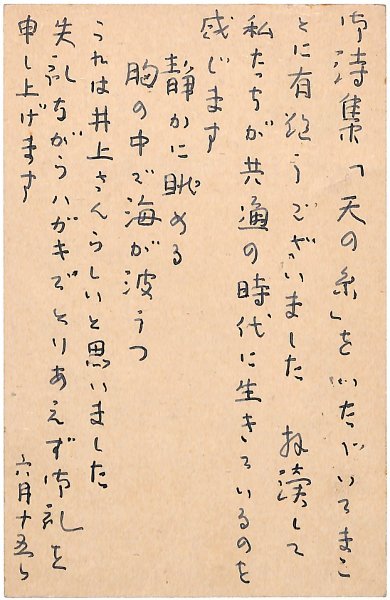 御詩集「天の糸」をいただいてまこ
とに有難うございました 拝読して
私たちが の時代に生きているのを
感じます
静かに眺める
胸の中で海が波うつ
これは井上さんらしいと思いました
失礼ながらハガキでとりあえず御礼を
申し上げます
六月十五日